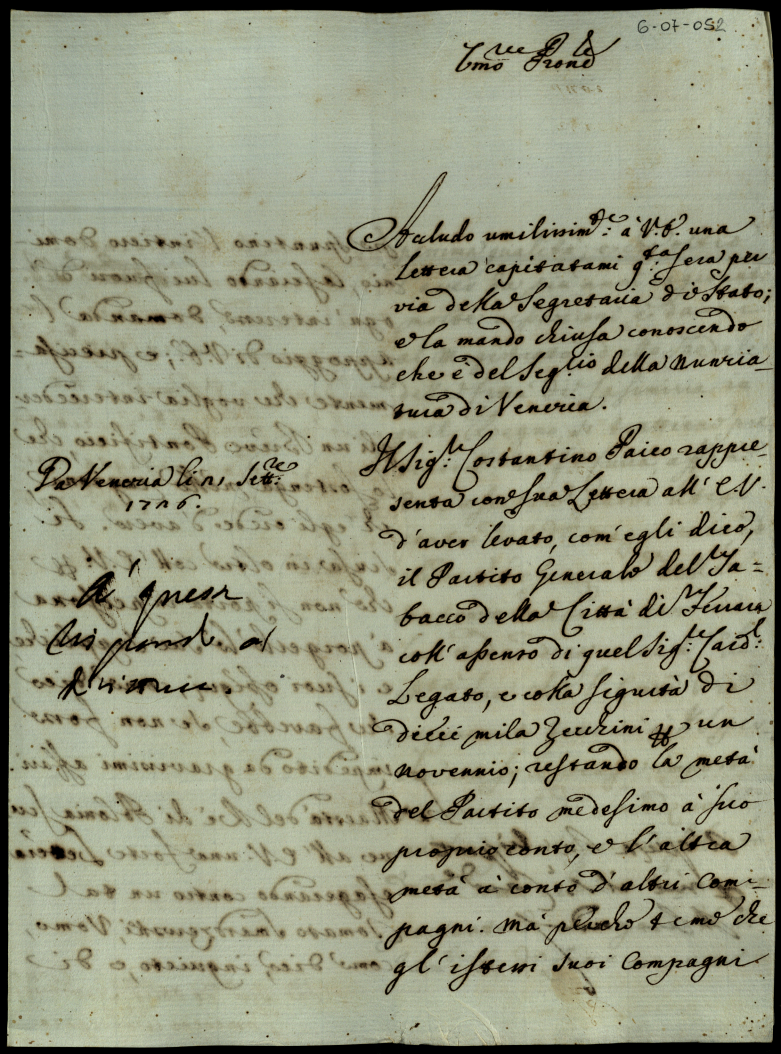 6-07-052
Accludo umilissim.te à V.E. una
lettera capitatami q.ta sera per
via della Segretaria di Stato;
e la mando chiusa conoscendo
che è del Seg.rio della Nunzia-
tura di Venezia.
Il Sig.r Costantino
senta con sua Lettera all' E.V.
d'aver levato, com' egli dice,
il Partito Generale del Ta-
bacco della Città di Ferrara
coll' assenso di quel Sig.r Card.l
Legato, e colla sigurtà di
dieci mila Zecchini un
novennio; restando la metà
del Partito medesimo à suo
proprio conto, e l'altra
metà à conto d'altri Com-
pagni. Mà perche teme che
gl' istessi suoi Compagni
Da Venezia li 21 Sett.re
1726.
A' questa